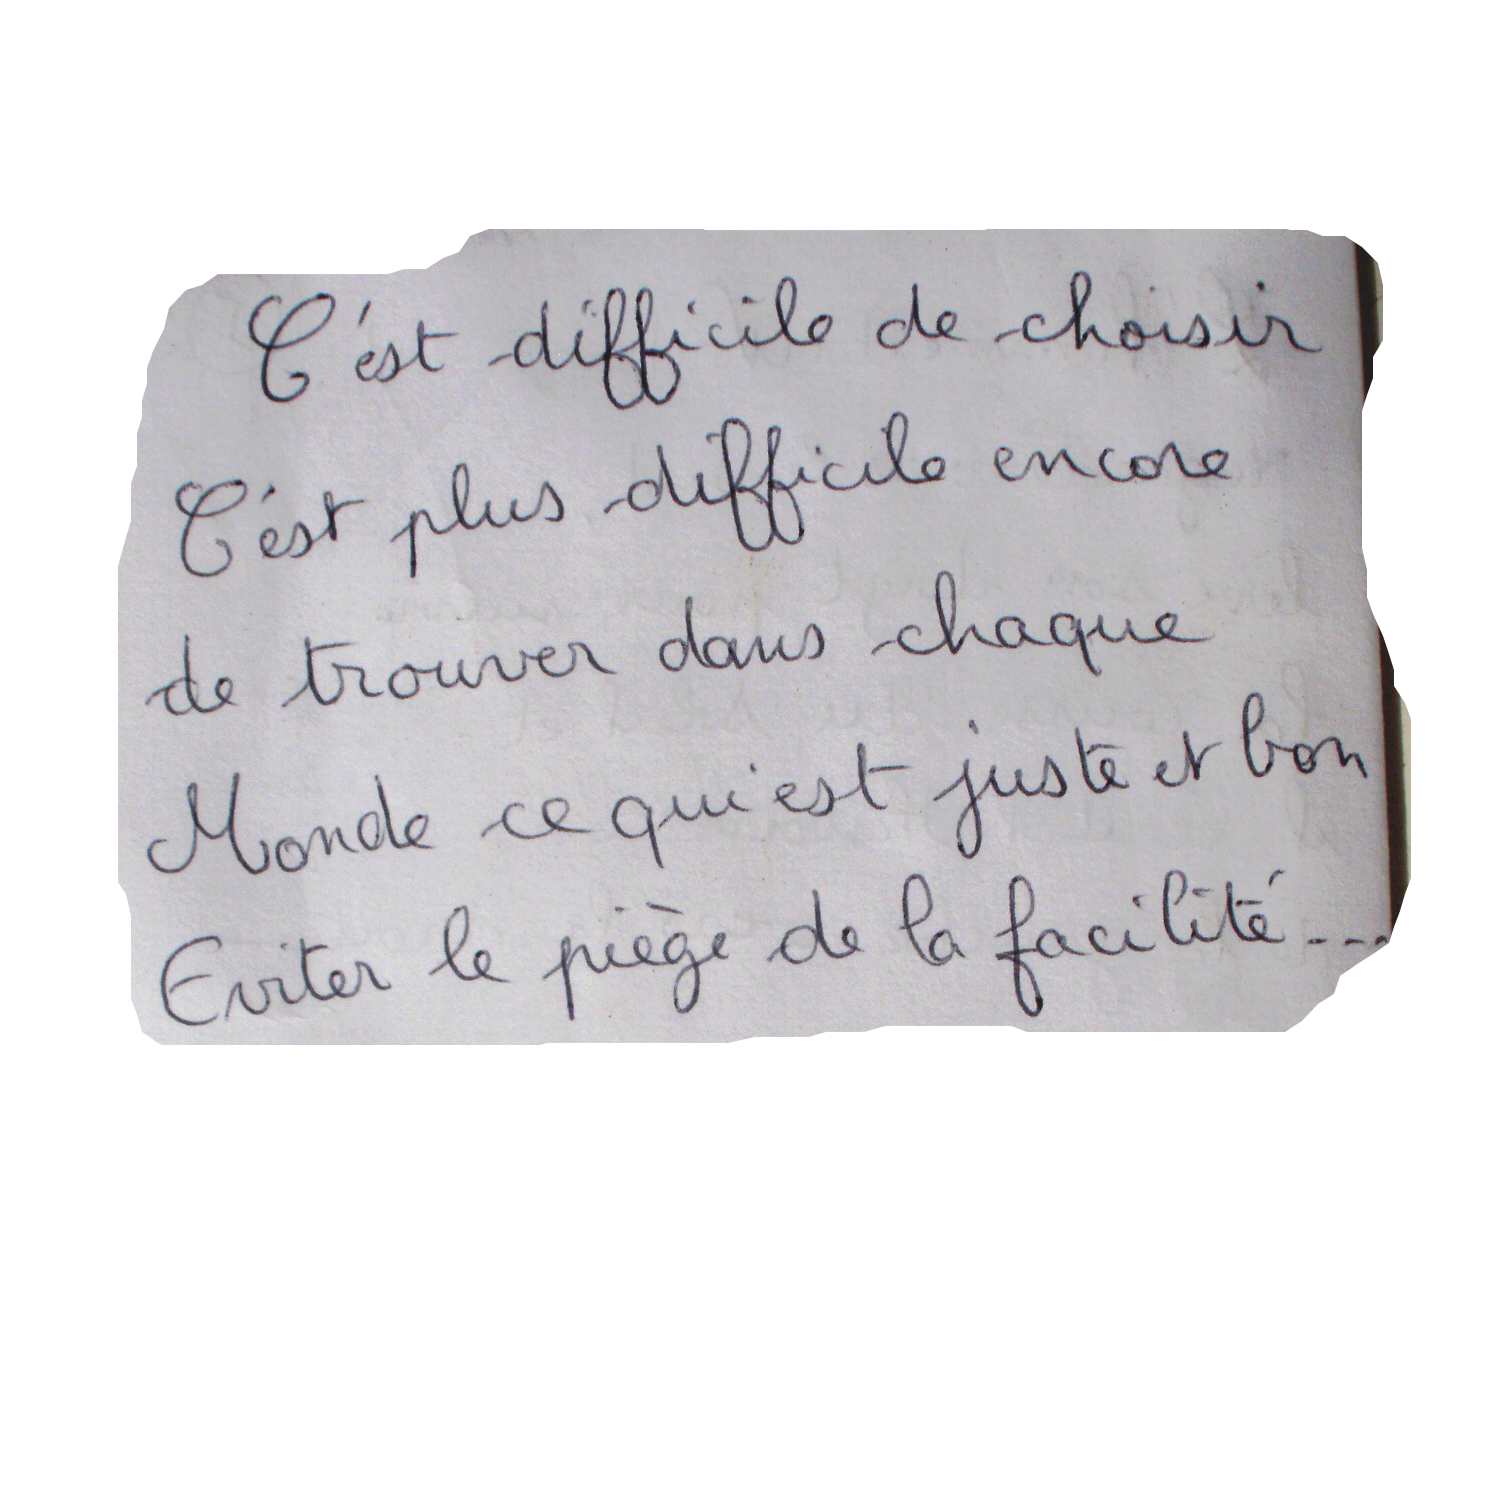 C'est difficile de choisir
C'est plus difficile encore
de trouver dans chaque
Monde ce qui est juste et bon
Eviter le piège de la facilité...